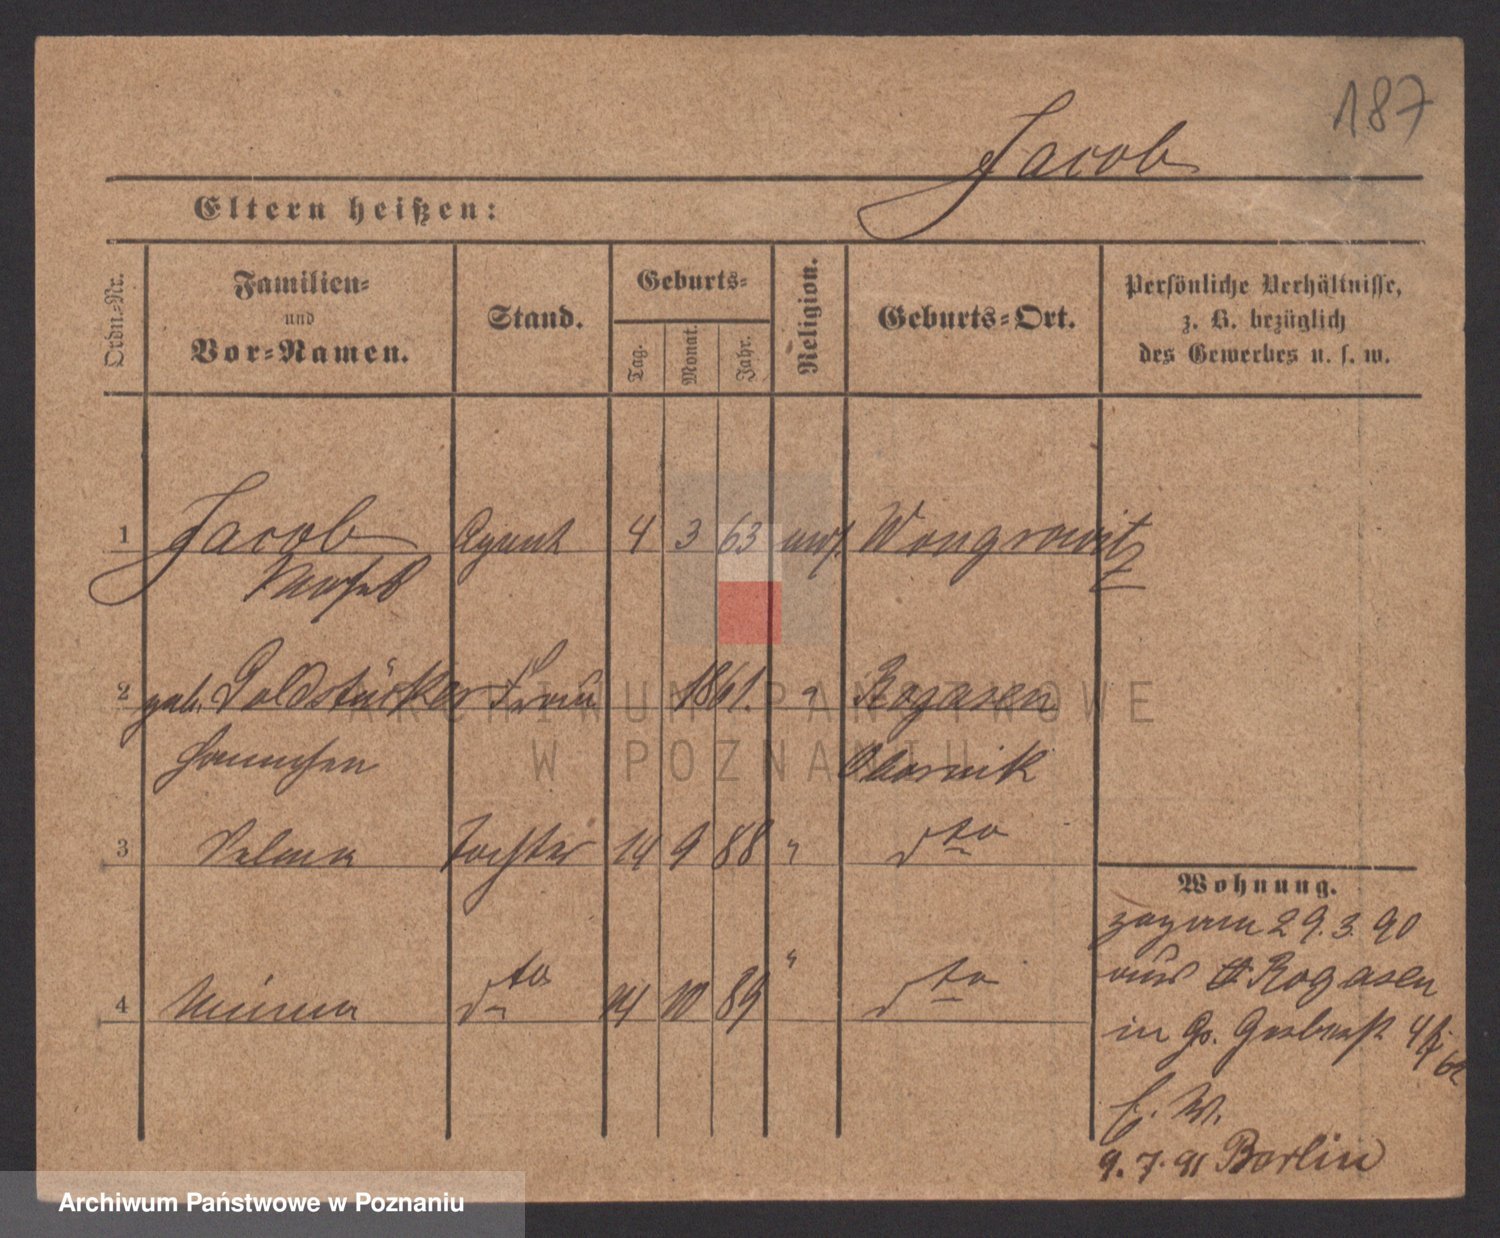 187
Jacob
Eltern heißen:
Ordn.-Nr.
Familien-
und
Vor-Namen.
Stand.
Geburts-
Tag.
Monat.
Jahr.
Religion.
Geburts-Ort.
Persönliche Verhältnisse,
z. B. bezüglich
des Gewerbes u. s. w.
1 Jacob Agent 4 3 63 mos. Wongrowitz
2 geb. Goldstücker Frau 1861. " Rogasen
Hannchen Obornik
3 Selma Tochter 14 9 88 " dto
4 Minna dto 14 10 89 " dto
Wohnung.
zog am 29.3.90
aus Rogasen
in Gr. Gerberst
9.7.91 Berlin
ARCHIWUM PAŃSTWOWE
W POZNANIU
Archiwum Państwowe w Poznaniu